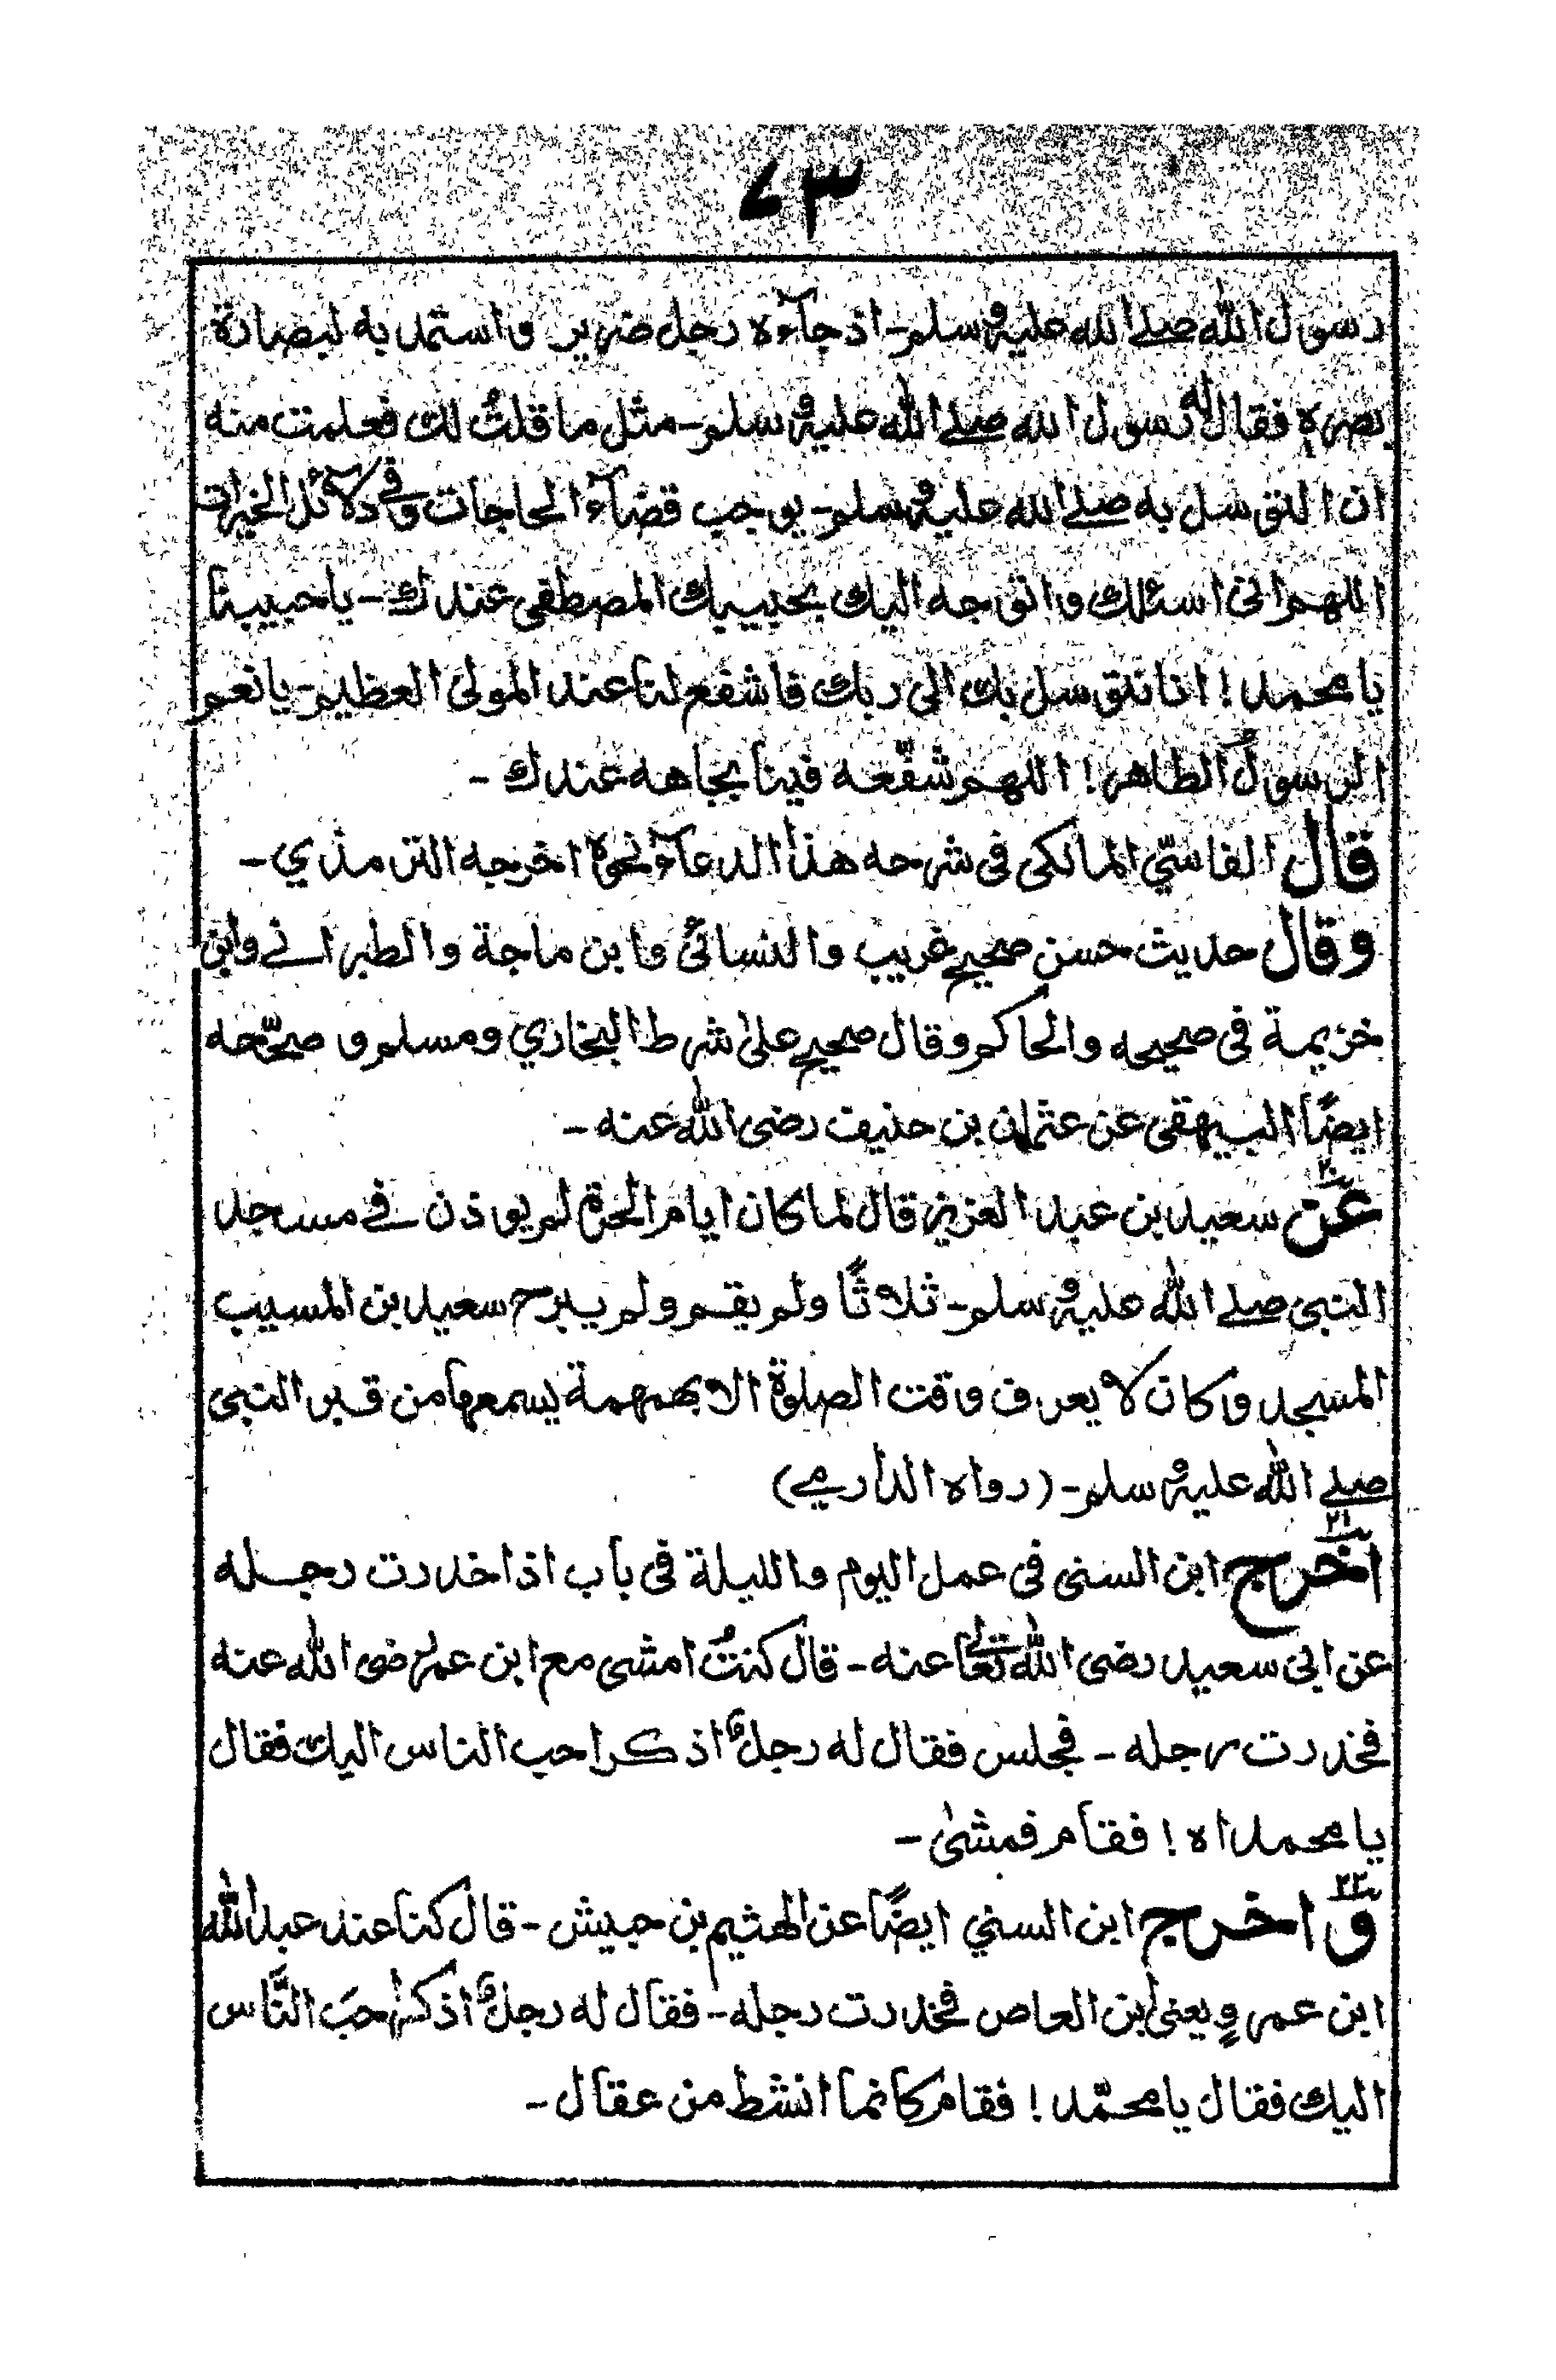 ۷۳
رسول الله صلے الله عليه وسلم - اذ جآءه رجل ضرير واستمد به لبصارة
بصره فقال له رسول الله صلے الله عليه وسلم - مثل ما قلتُ لك فعلمت منه
ان التوسل به صلے الله عليه وسلم - يوجب قضآء الحاجات وفي دلائل الخيرات
اللهم انى اسئلك واتوجه اليك بحبيبك المصطفى عندك - يا حبيبنا
يا محمد ! انا نتوسل بك الى ربك فاشفع لنا عند المولى العظيم - يا نعم
الرسول الطاهر ! اللهم شفّعه فينا بجاهه عندك -
قال الفاسّي المالكى فى شرحه هذا الدعآء نحوه اخرجه الترمذي -
وقال حديث حسن صحيح غريب والنسائى وابن ماجة والطبرانے وابن
خزيمة فى صحيحه والحاكم وقال صحيح علىٰ شرط البخاري ومسلم و صحّحه
ايضًا البيهقى عن عثمان بن حنيف رضى الله عنه -
۲۰ عن سعيد بن عبد العزيز قال لما كان ايام الحرة لم يوذن فے مسجد
النبى صلے الله عليه وسلم - ثلاثًا ولم يقم ولم يبرح سعيد بن المسيب
المسجد وكان لا يعرف وقت الصلوة الا بهمهمة يسمعها من قبر النبى
صلے الله عليه وسلم - (رواه الدارمے)
۲۱ اخرج ابن السنى فى عمل اليوم والليلة فى باب اذا خدرت رجله
عن ابى سعيد رضى الله تعالىٰ عنه - قال كنتُ امشى مع ابن عمر رضى الله عنه
فخدرت رجله - فجلس فقال له رجلٌ اذكر احب الناس اليك فقال
يا محمداه ! فقام فمشىٰ -
۲۲ و اخرج ابن السني ايضًا عن الهثيم بن حبيش - قال كنا عند عبد الله
ابن عمرٍو يعنى ابن العاص فخدرت رجله - فقال له رجلٌ اذكر احبَ النَّاس
اليك فقال يا محمّد ! فقام كانما انشط من عقال -